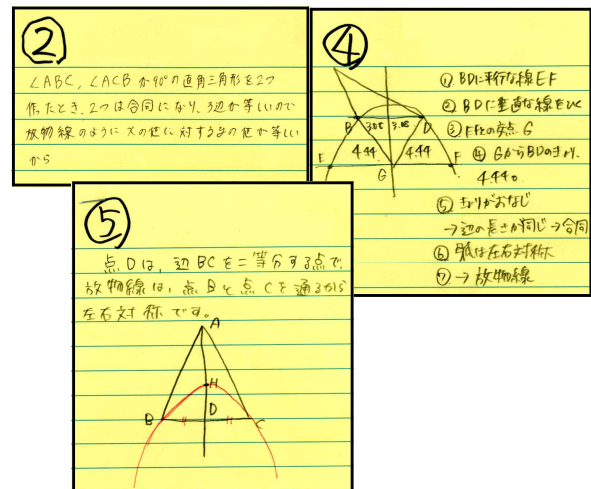 ②
∠ABC, ∠ACBが90°の直角三角形を2つ
作たとき、2つは合同になり、3辺が等しいので
放物線のようにxの値に対するyの値が等しい
から
④
B 3.08 3.08 D
4.44 4.44
E G F
① BDに平行な線EF
② BDに垂直な線をひく
③ EFとの交点 G
④ GからBDのきょり.
4.44。
⑤ きょりがおなじ
→辺の長さが同じ→合同
⑥ 弧は左右対称
⑦ → 放物線
⑤
点Dは、辺BCを二等分する点で、
放物線は、点Bと点Cを通るから
左右対称です。
A
H
B D C